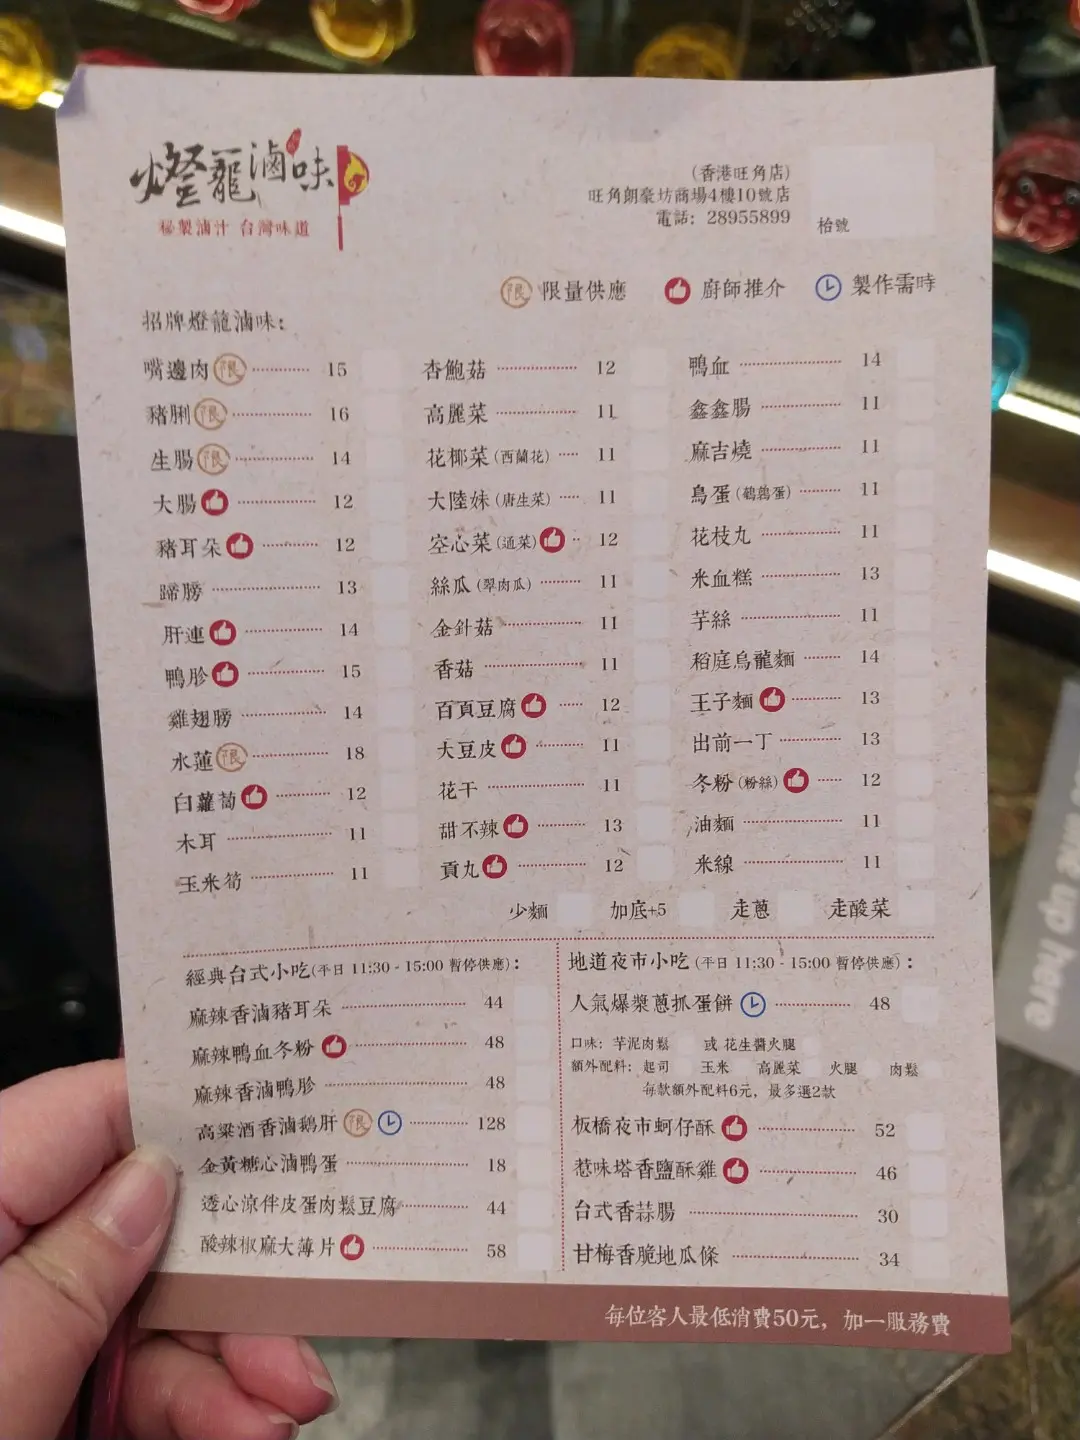 燈籠滷味
秘製滷汁 台灣味道
(香港旺角店)
旺角朗豪坊商場4樓10號店
電話: 28955899
枱號
限 限量供應 廚師推介 製作需時
招牌燈籠滷味:
嘴邊肉 限 15
豬脷 限 16
生腸 限 14
大腸 12
豬耳朵 12
蹄膀 13
肝連 14
鴨胗 15
雞翅膀 14
水蓮 限 18
白蘿蔔 12
木耳 11
玉米筍 11
杏鮑菇 12
高麗菜 11
花椰菜(西蘭花) 11
大陸妹(唐生菜) 11
空心菜(通菜) 12
絲瓜(翠肉瓜) 11
金針菇 11
香菇 11
百頁豆腐 12
大豆皮 11
花干 11
甜不辣 13
貢丸 12
鴨血 14
鑫鑫腸 11
麻吉燒 11
鳥蛋(鵪鶉蛋) 11
花枝丸 11
米血糕 13
芋絲 11
稻庭烏龍麵 14
王子麵 13
出前一丁 13
冬粉(粉絲) 12
油麵 11
米線 11
少麵 加底+5 走蔥 走酸菜
經典台式小吃(平日 11:30 - 15:00 暫停供應):
麻辣香滷豬耳朵 44
麻辣鴨血冬粉 48
麻辣香滷鴨胗 48
高粱酒香滷鵝肝 限 128
金黃糖心滷鴨蛋 18
透心涼伴皮蛋肉鬆豆腐 44
酸辣椒麻大薄片 58
地道夜市小吃(平日 11:30 - 15:00 暫停供應):
人氣爆漿蔥抓蛋餅 48
口味: 芋泥肉鬆 或 花生醬火腿
額外配料: 起司 玉米 高麗菜 火腿 肉鬆
每款額外配料6元, 最多選2款
板橋夜市蚵仔酥 52
惹味塔香鹽酥雞 46
台式香蒜腸 30
甘梅香脆地瓜條 34
每位客人最低消費50元, 加一服務費